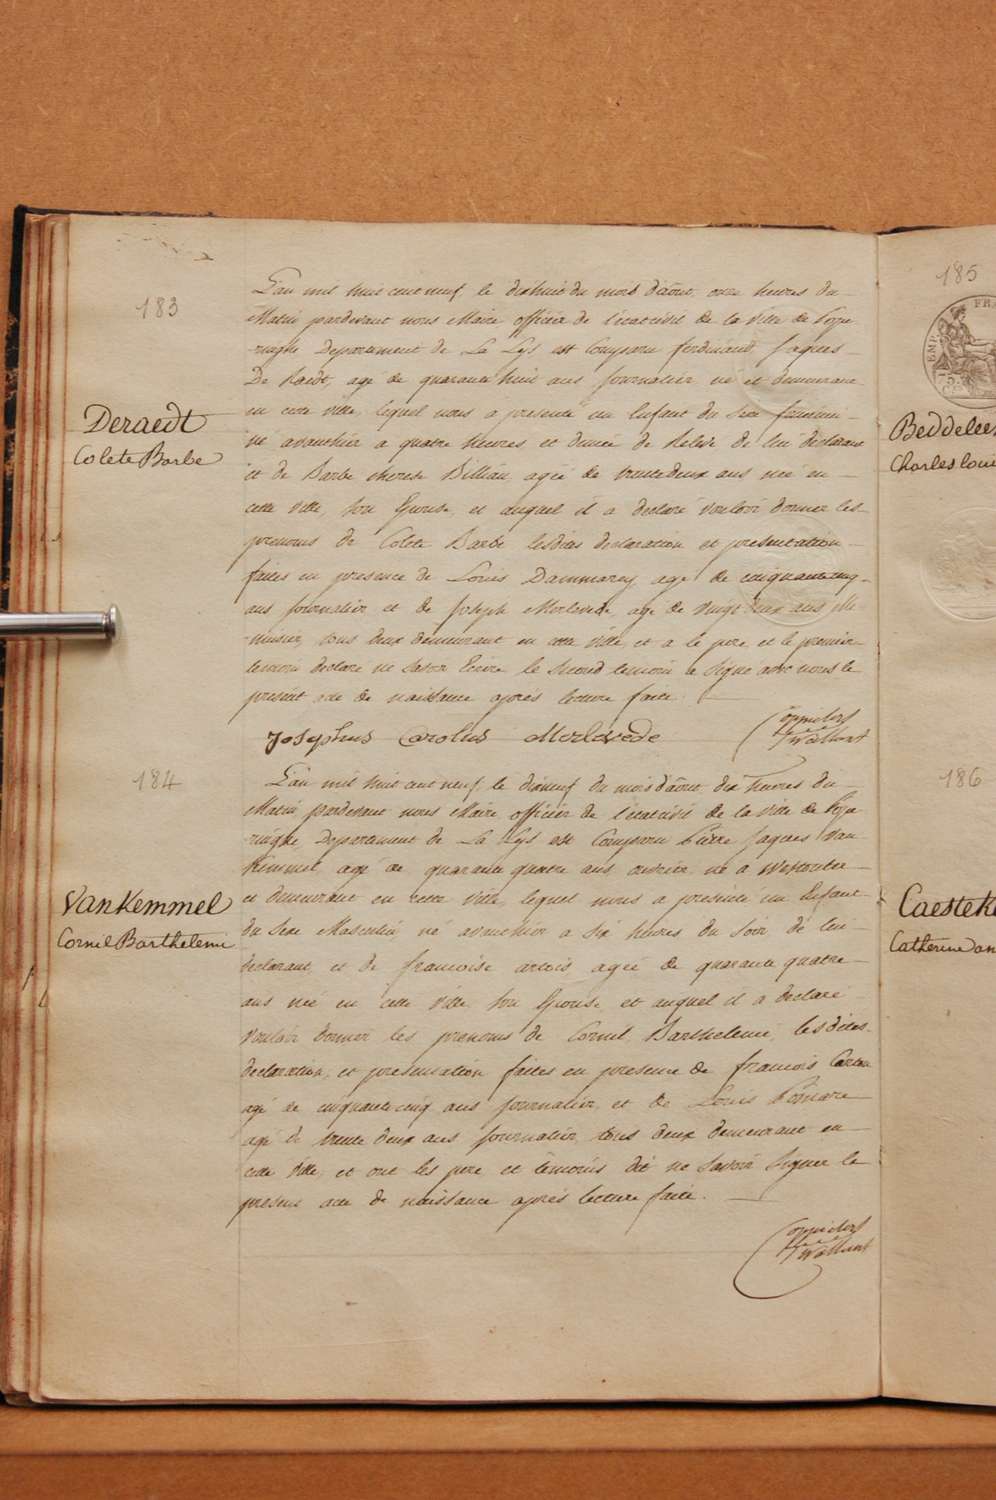 183
L'an mil huit cent neuf le dixhuit du mois d'août, onze heures du
Matin pardevant nous Maire officier de l'etat civil de la Ville de Pope
-ringhe Departement de La Lys est Comparu ferdinand Jaques
De Raedt, agé de quarante huit ans journalier né et demeurant
en cette ville, lequel nous a presenté un Enfant du Sexe feminin
Deraedt
Colete Barbe
né avanthier a quatre heures et demie de Relevé de lui declarant
et de Barbe therese Billiau agée de trente deux ans née en
cette ville, Son Epouse, et auquel il a declaré vouloir donner les
prenoms de Colete Barbe lesdites declaration et presentation
faites en presence de Louis Dammarey agé de cinquante cinq
ans journalier et de Joseph Merlevede agé de vingt deux ans
tous deux demeurant en cette ville, et a le pere et le premier
temoin declaré ne savoir Ecrire le Second temoin a Signé avec nous le
present acte de naissance aprés lecture faite.
Josephus Carolus Merlevede
184
L'an mil huit cent neuf le dixneuf du mois d'août dix heures du
Matin pardevant nous Maire officier de l'etat civil de la Ville de Pope
-ringhe Departement de La Lys est Comparu Pierre Jaques Van
Kemmel, agé de quarante quatre ans ouvrier né a Westoutre
et demeurant en cette Ville, lequel nous a presenté un Enfant
VanKemmel
Cornil Barthelemi
du Sexe Masculin né avanthier a Six heures du Soir de lui
declarant, et de francoise artois agée de quarante quatre
ans née en cette Ville Son Epouse et auquel il a declaré
vouloir donner les prenoms de Cornil Barthelemi, les dites
declaration, et presentation faites en presence de francois Carton
agé de cinquante cinq ans journalier, et de Louis
agé de trente deux ans journalier, tous deux demeurant en
cette Ville, et ont les pere et temoins dit ne Savoir Signer le
present acte de naissance aprés lecture faite.
185
Charles Loui
186
Catherine